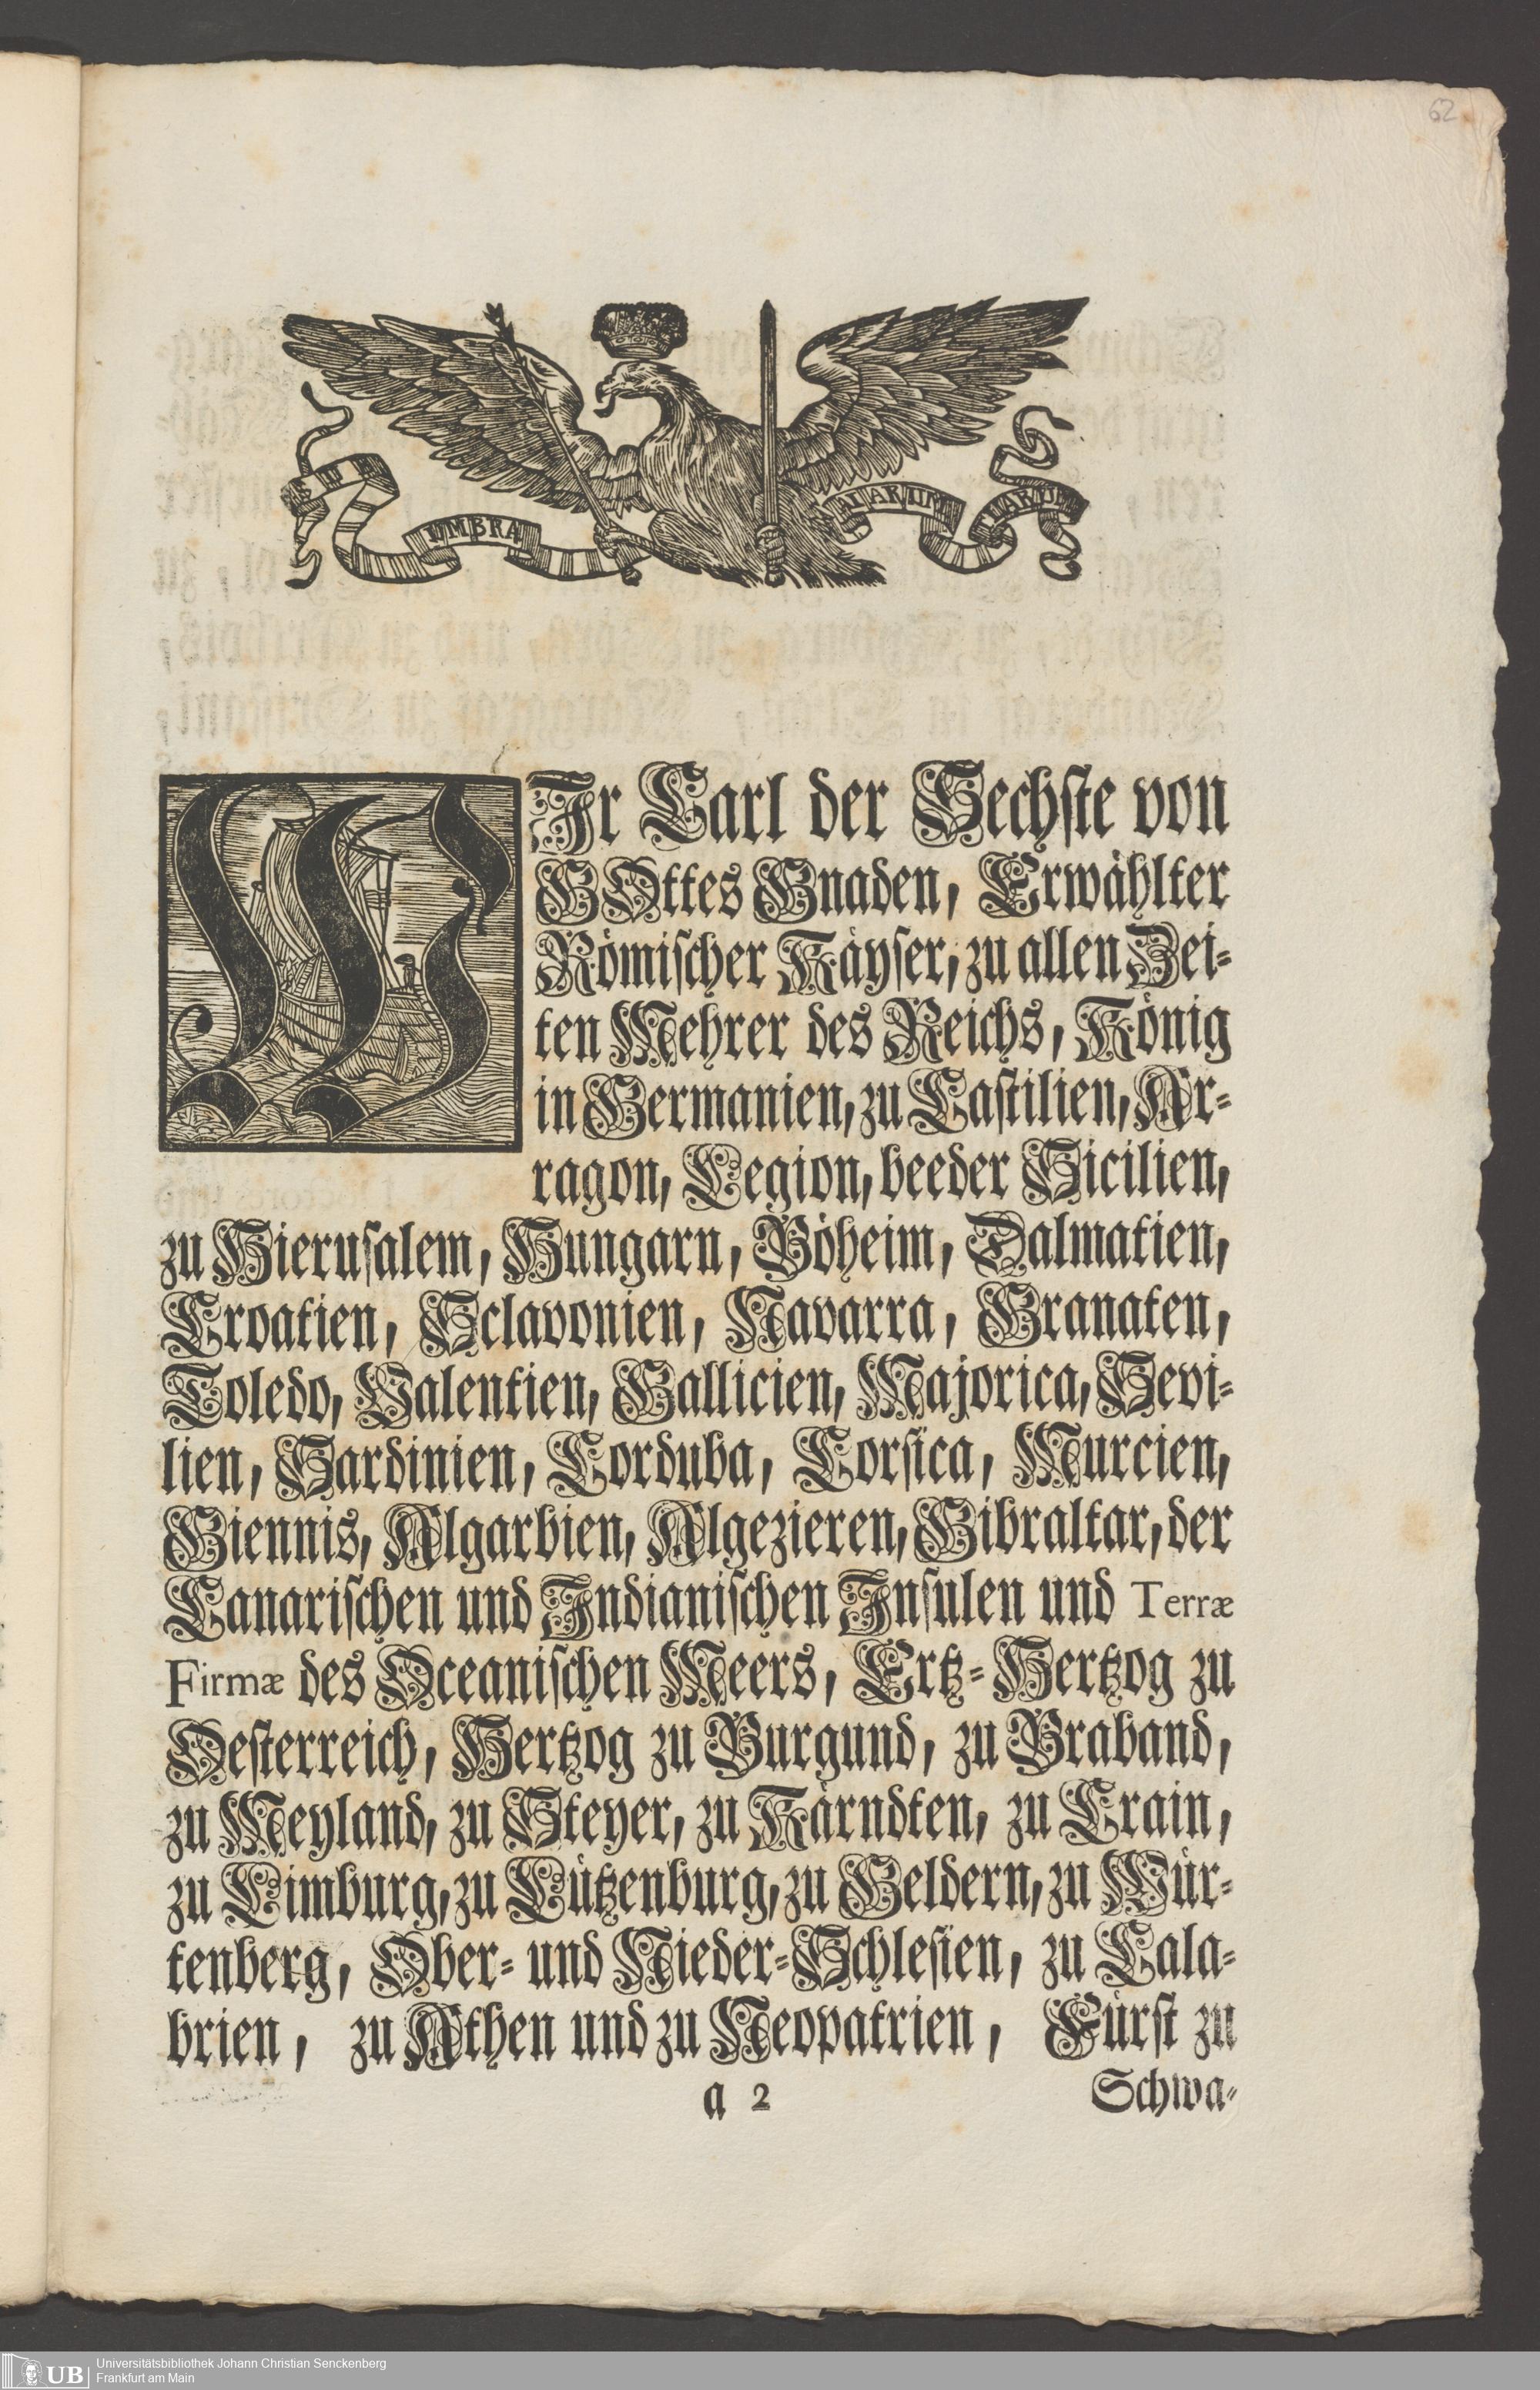 62
SUB UMBRA ALARUM TUARUM
WIr Carl der Sechste von
GOttes Gnaden, Erwählter
Römischer Käyser, zu allen Zei-
ten Mehrer des Reichs, König
in Germanien, zu Castilien, Ar-
ragon, Legion, beeder Sicilien,
zu Hierusalem, Hungarn, Böheim, Dalmatien,
Croatien, Sclavonien, Navarra, Granaten,
Toledo, Valentien, Gallicien, Majorica, Sevi-
lien, Sardinien, Corduba, Corsica, Murcien,
Giennis, Algarbien, Algezieren, Gibraltar, der
Canarischen und Indianischen Insulen und Terræ
Firmæ des Oceanischen Meers, Ertz-Hertzog zu
Oesterreich, Hertzog zu Burgund, zu Braband,
zu Meyland, zu Steyer, zu Kärndten, zu Crain,
zu Limburg, zu Lützenburg, zu Geldern, zu Wür-
tenberg, Ober- und Nieder-Schlesien, zu Cala-
brien, zu Athen und zu Neopatrien, Fürst zu
a 2 Schwa-
UB Universitätsbibliothek Johann Christian Senckenberg
Frankfurt am Main